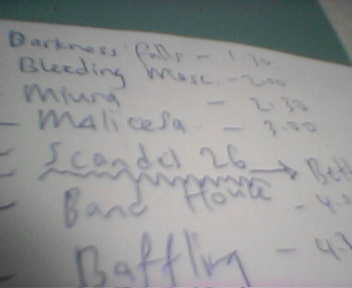 Darkness falls - 1.30
Bleeding Masc. - 2.00
Miura - 2.30
- Malicesa - 3.00
- Scandal 26 →
- Band House - 4.
- Baffling - 4